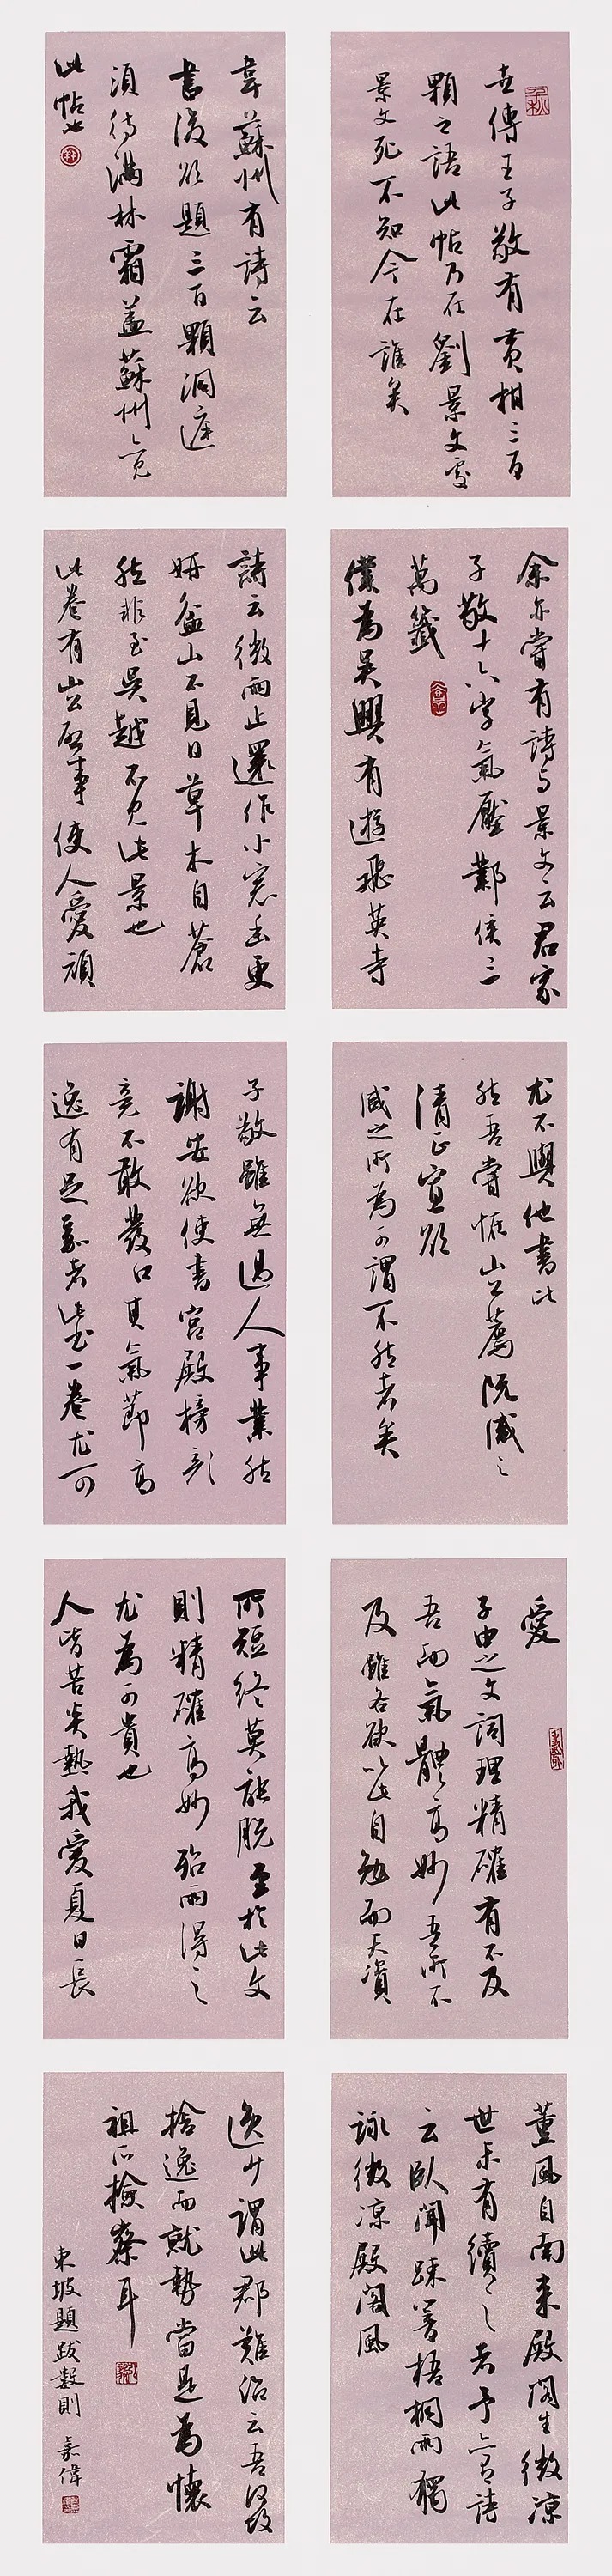 世傳王子敬有黃柑三百
顆之語此帖乃在劉景文處
景文死不知今在誰矣
韋蘇州有詩云
書後欲題三百顆洞庭
須待滿林霜蓋蘇州亦見
此帖也
余亦嘗有詩与景文云君家
子敬十六字氣壓鄴侯三
萬籤
僕為吳興有遊飛英寺
詩云微雨止還作小窓幽更
妍盆山不見日草木自蒼
然非至吳越不見此景也
此卷有山公啓事使人愛頑
尤不與他書比
然吾嘗怪山公薦阮咸之
清正寡欲
咸之所為可謂不然者矣
子敬雖無過人事業然
謝安欲使書宮殿榜
竟不敢發口其氣節高
逸有足嘉者此書一卷尤可
愛
子由之文詞理精確有不及
吾而氣體高妙吾所不
及雖各欲以此自勉而天資
所短終莫能脫至於此文
則精確高妙殆兩得之
尤為可貴也
人皆苦炎熱我愛夏日長
薰風自南來殿閣生微涼
世未有續之者予亦有詩
云臥聞疎響梧桐雨獨
詠微涼殿閣風
逸少謂此郡難治云吾何故
捨逸而就勞當是為懷
祖所檢察耳
東坡題跋數則 嘉偉